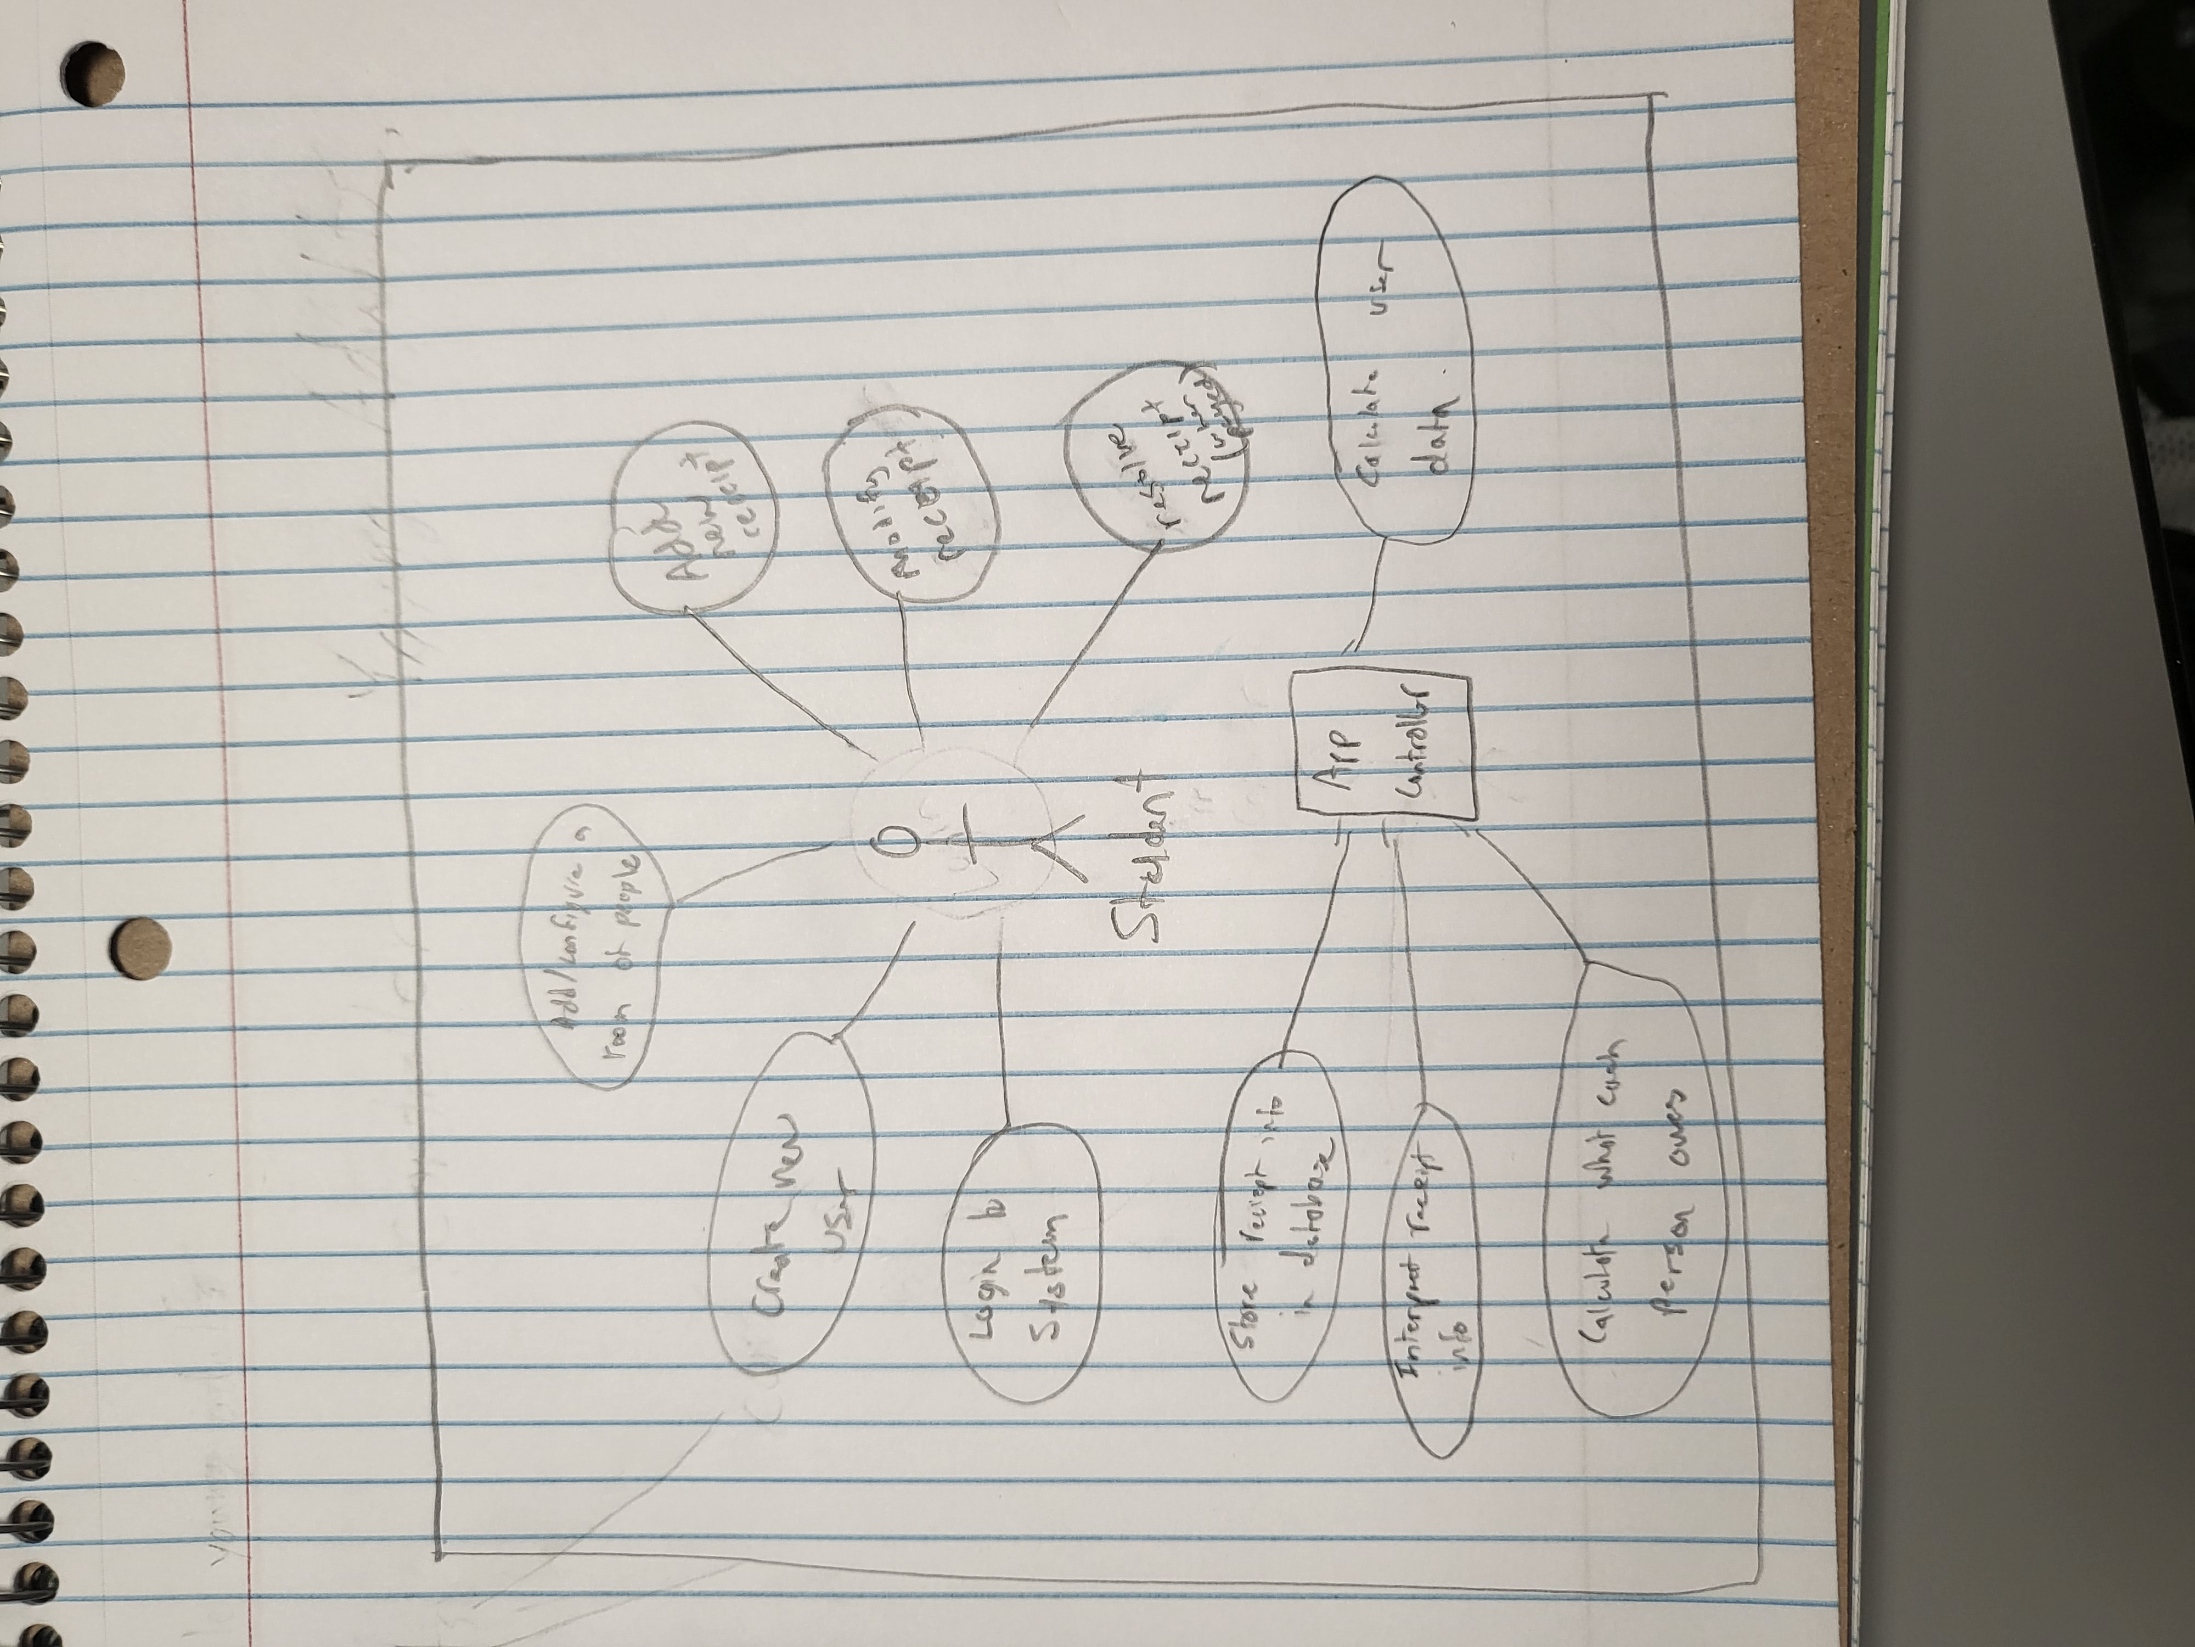 young
Young Adults
Add/configure a
room of people
Add
new
receipt
Create new
user
modify
receipt
Login to
System
Login
Student
resolve
receipt
(when
payed)
Store reciept info
in database
App
Controller
Calculate user
data.
Interpret receipt
info
Calculate what each
person owes